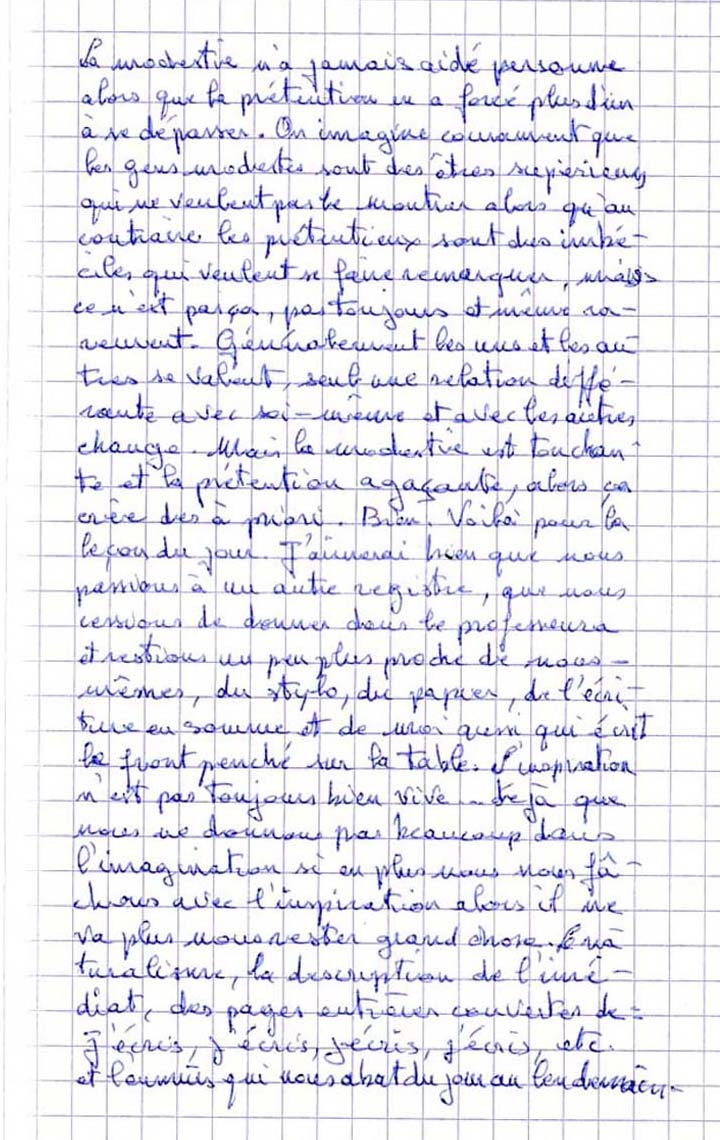 La modestie n'a jamais aidé personne
alors que la prétention en a forcé plus d'un
à se dépasser. On imagine couramment que
les gens modestes sont des êtres superieurs
qui ne veulent pas le montrer alors qu'au
contraire les prétentieux sont des imbé-
ciles qui veulent se faire remarquer, mais
ce n'est pas ça, pas toujours et même ra-
rement. Généralement les uns et les au-
tres se valent, seule une relation diffé-
rente avec soi-même et avec les autres
change. Mais la modestie est touchan-
te et la prétention agaçante, alors ça
crée des à priori. Bien. Voilà pour la
leçon du jour. J'aimerai bien que nous
passions à un autre registre, que nous
cessions de donner dans le professeura
et restions un peu plus proche de nous-
mêmes, du stylo, du papier, de l'écri-
ture en somme et de moi aussi qui écrit
le front penché sur la table. L'inspiration
n'est pas toujours bien vive. déjà que
nous ne donnons pas beaucoup dans
l'imagination si en plus nous nous fâ-
chons avec l'inspiration alors il ne
va plus nous rester grand chose. Le na
turalisme, la description de l'imé-
diat, des pages entières couvertes de =
J'écris, j'écris, j'écris, j'écris, etc.
et l'ennuis qui nous abat du jour au lendemain.